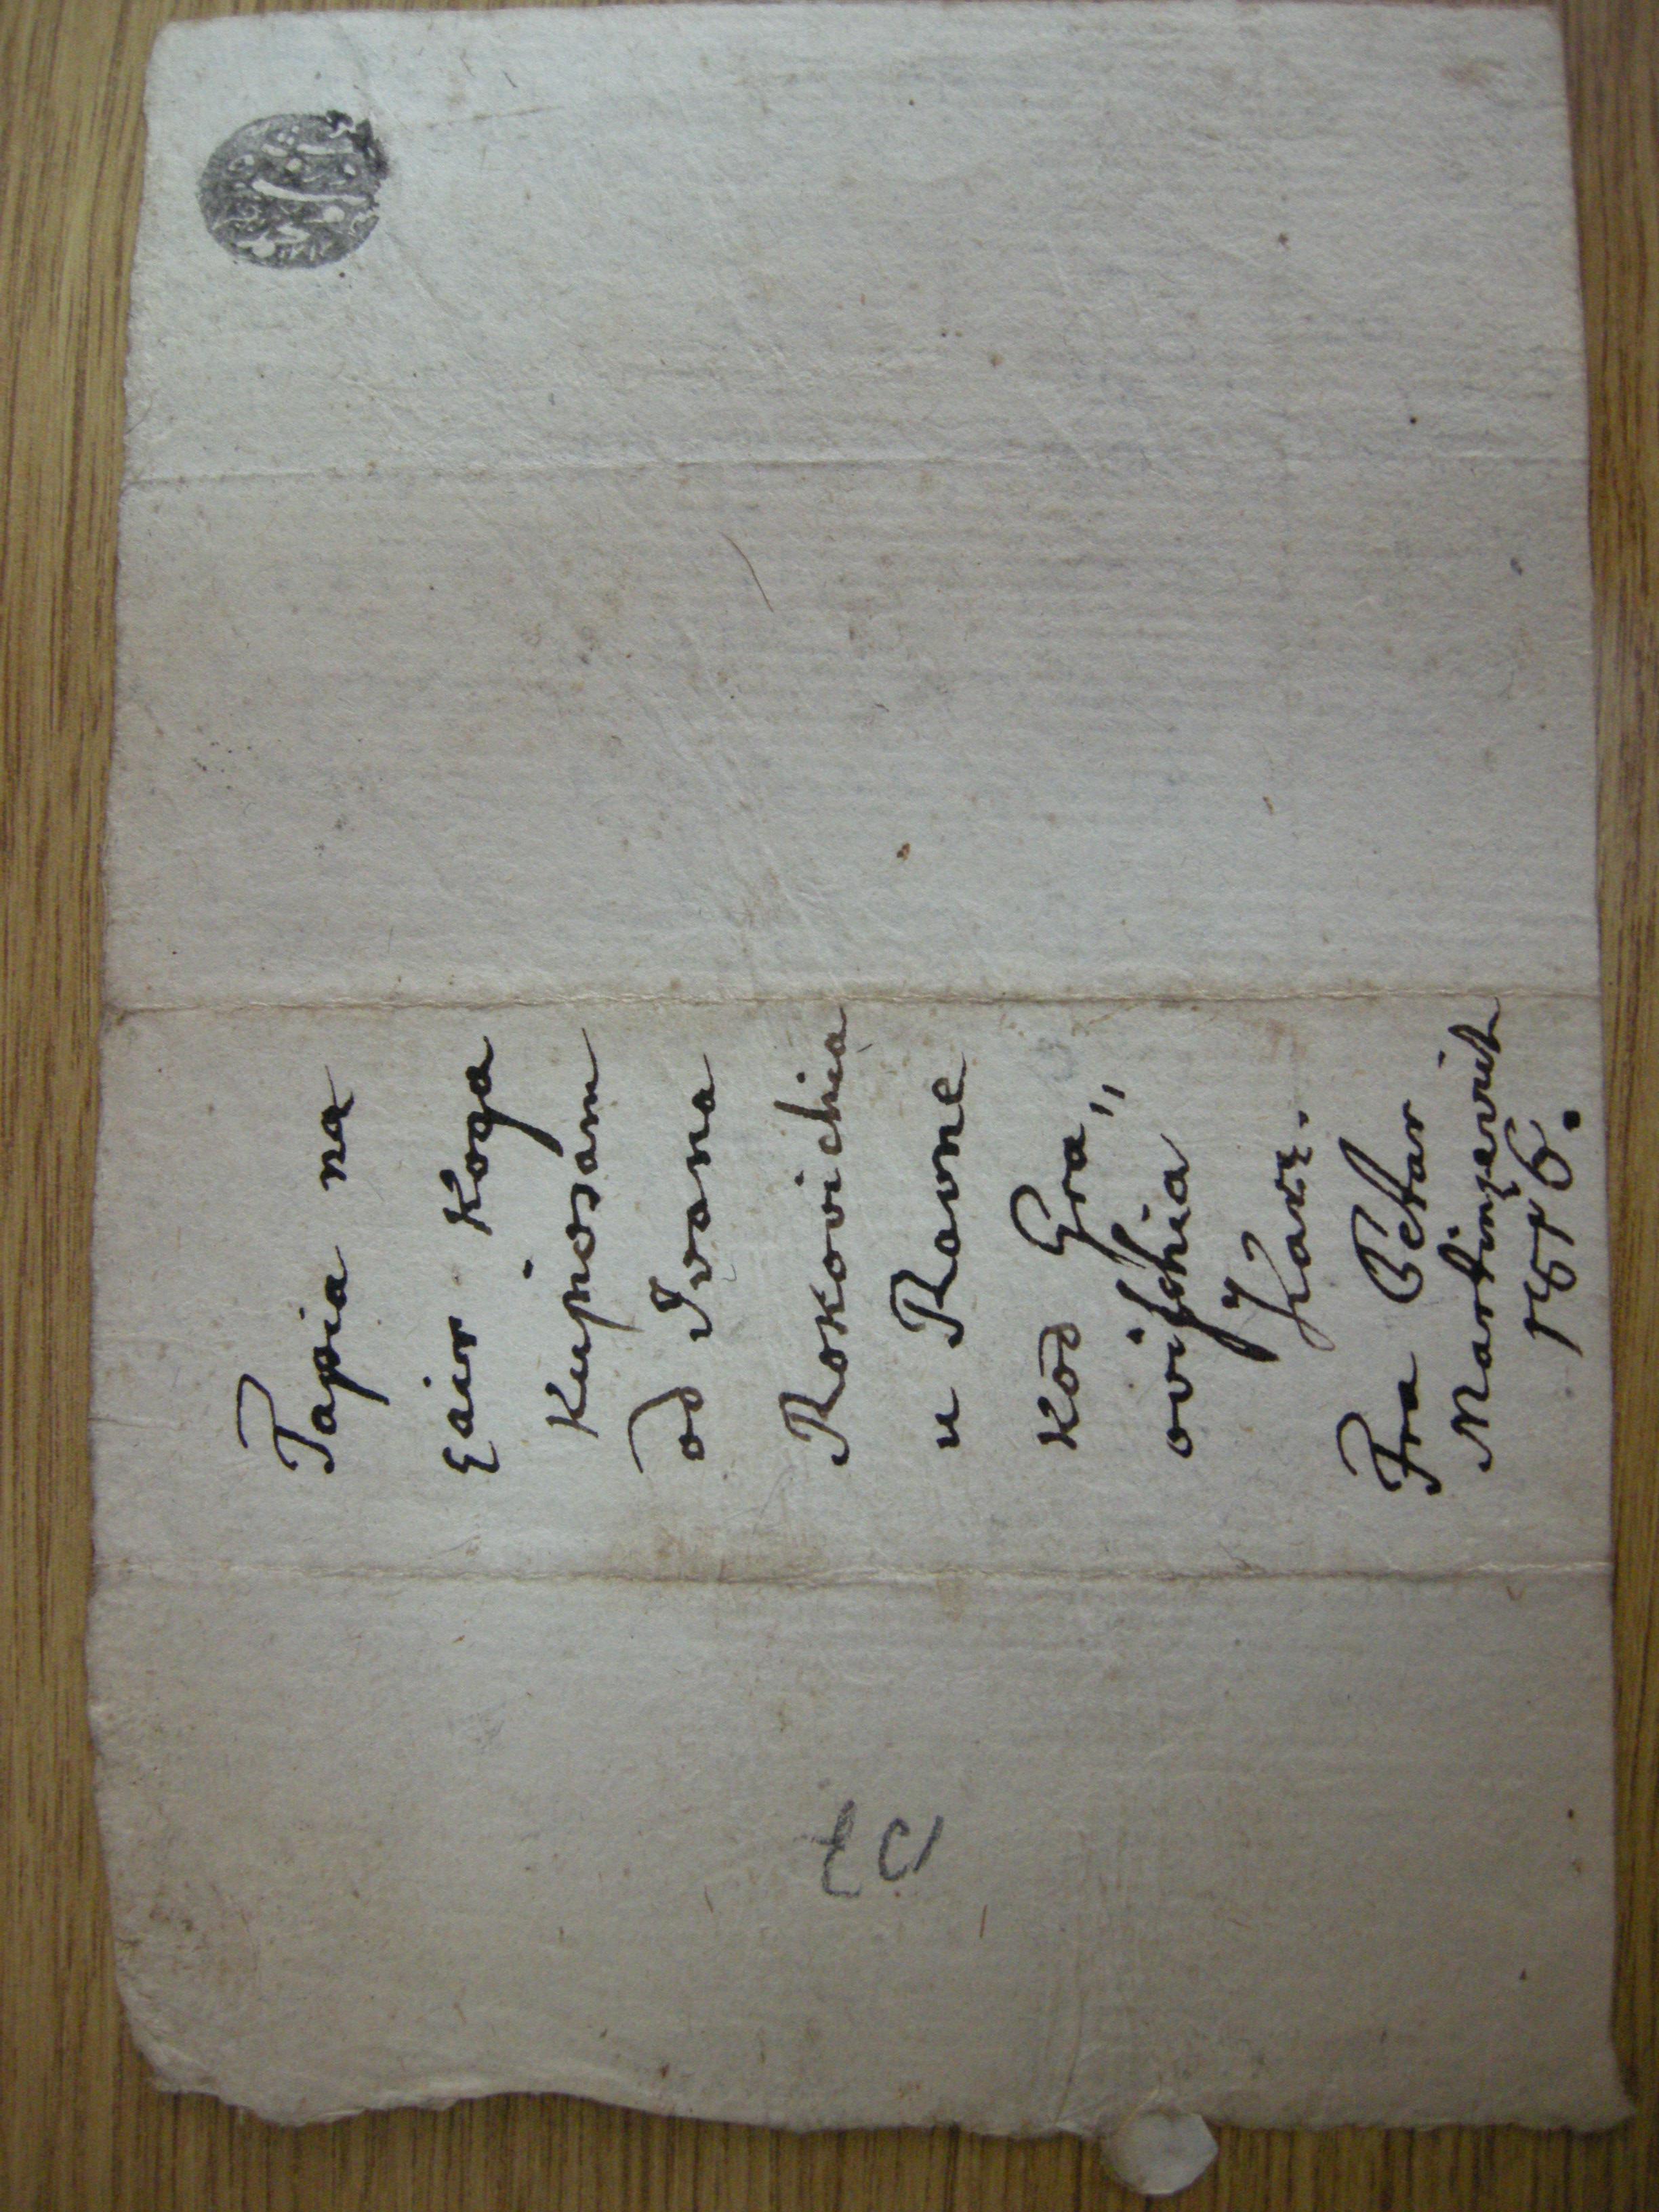 Tapia na
çair koga
kupiosam
od Ivana
Rokovichia
u Ravne
kod Gra„
ovischia
Fra Petar
Martinzevich